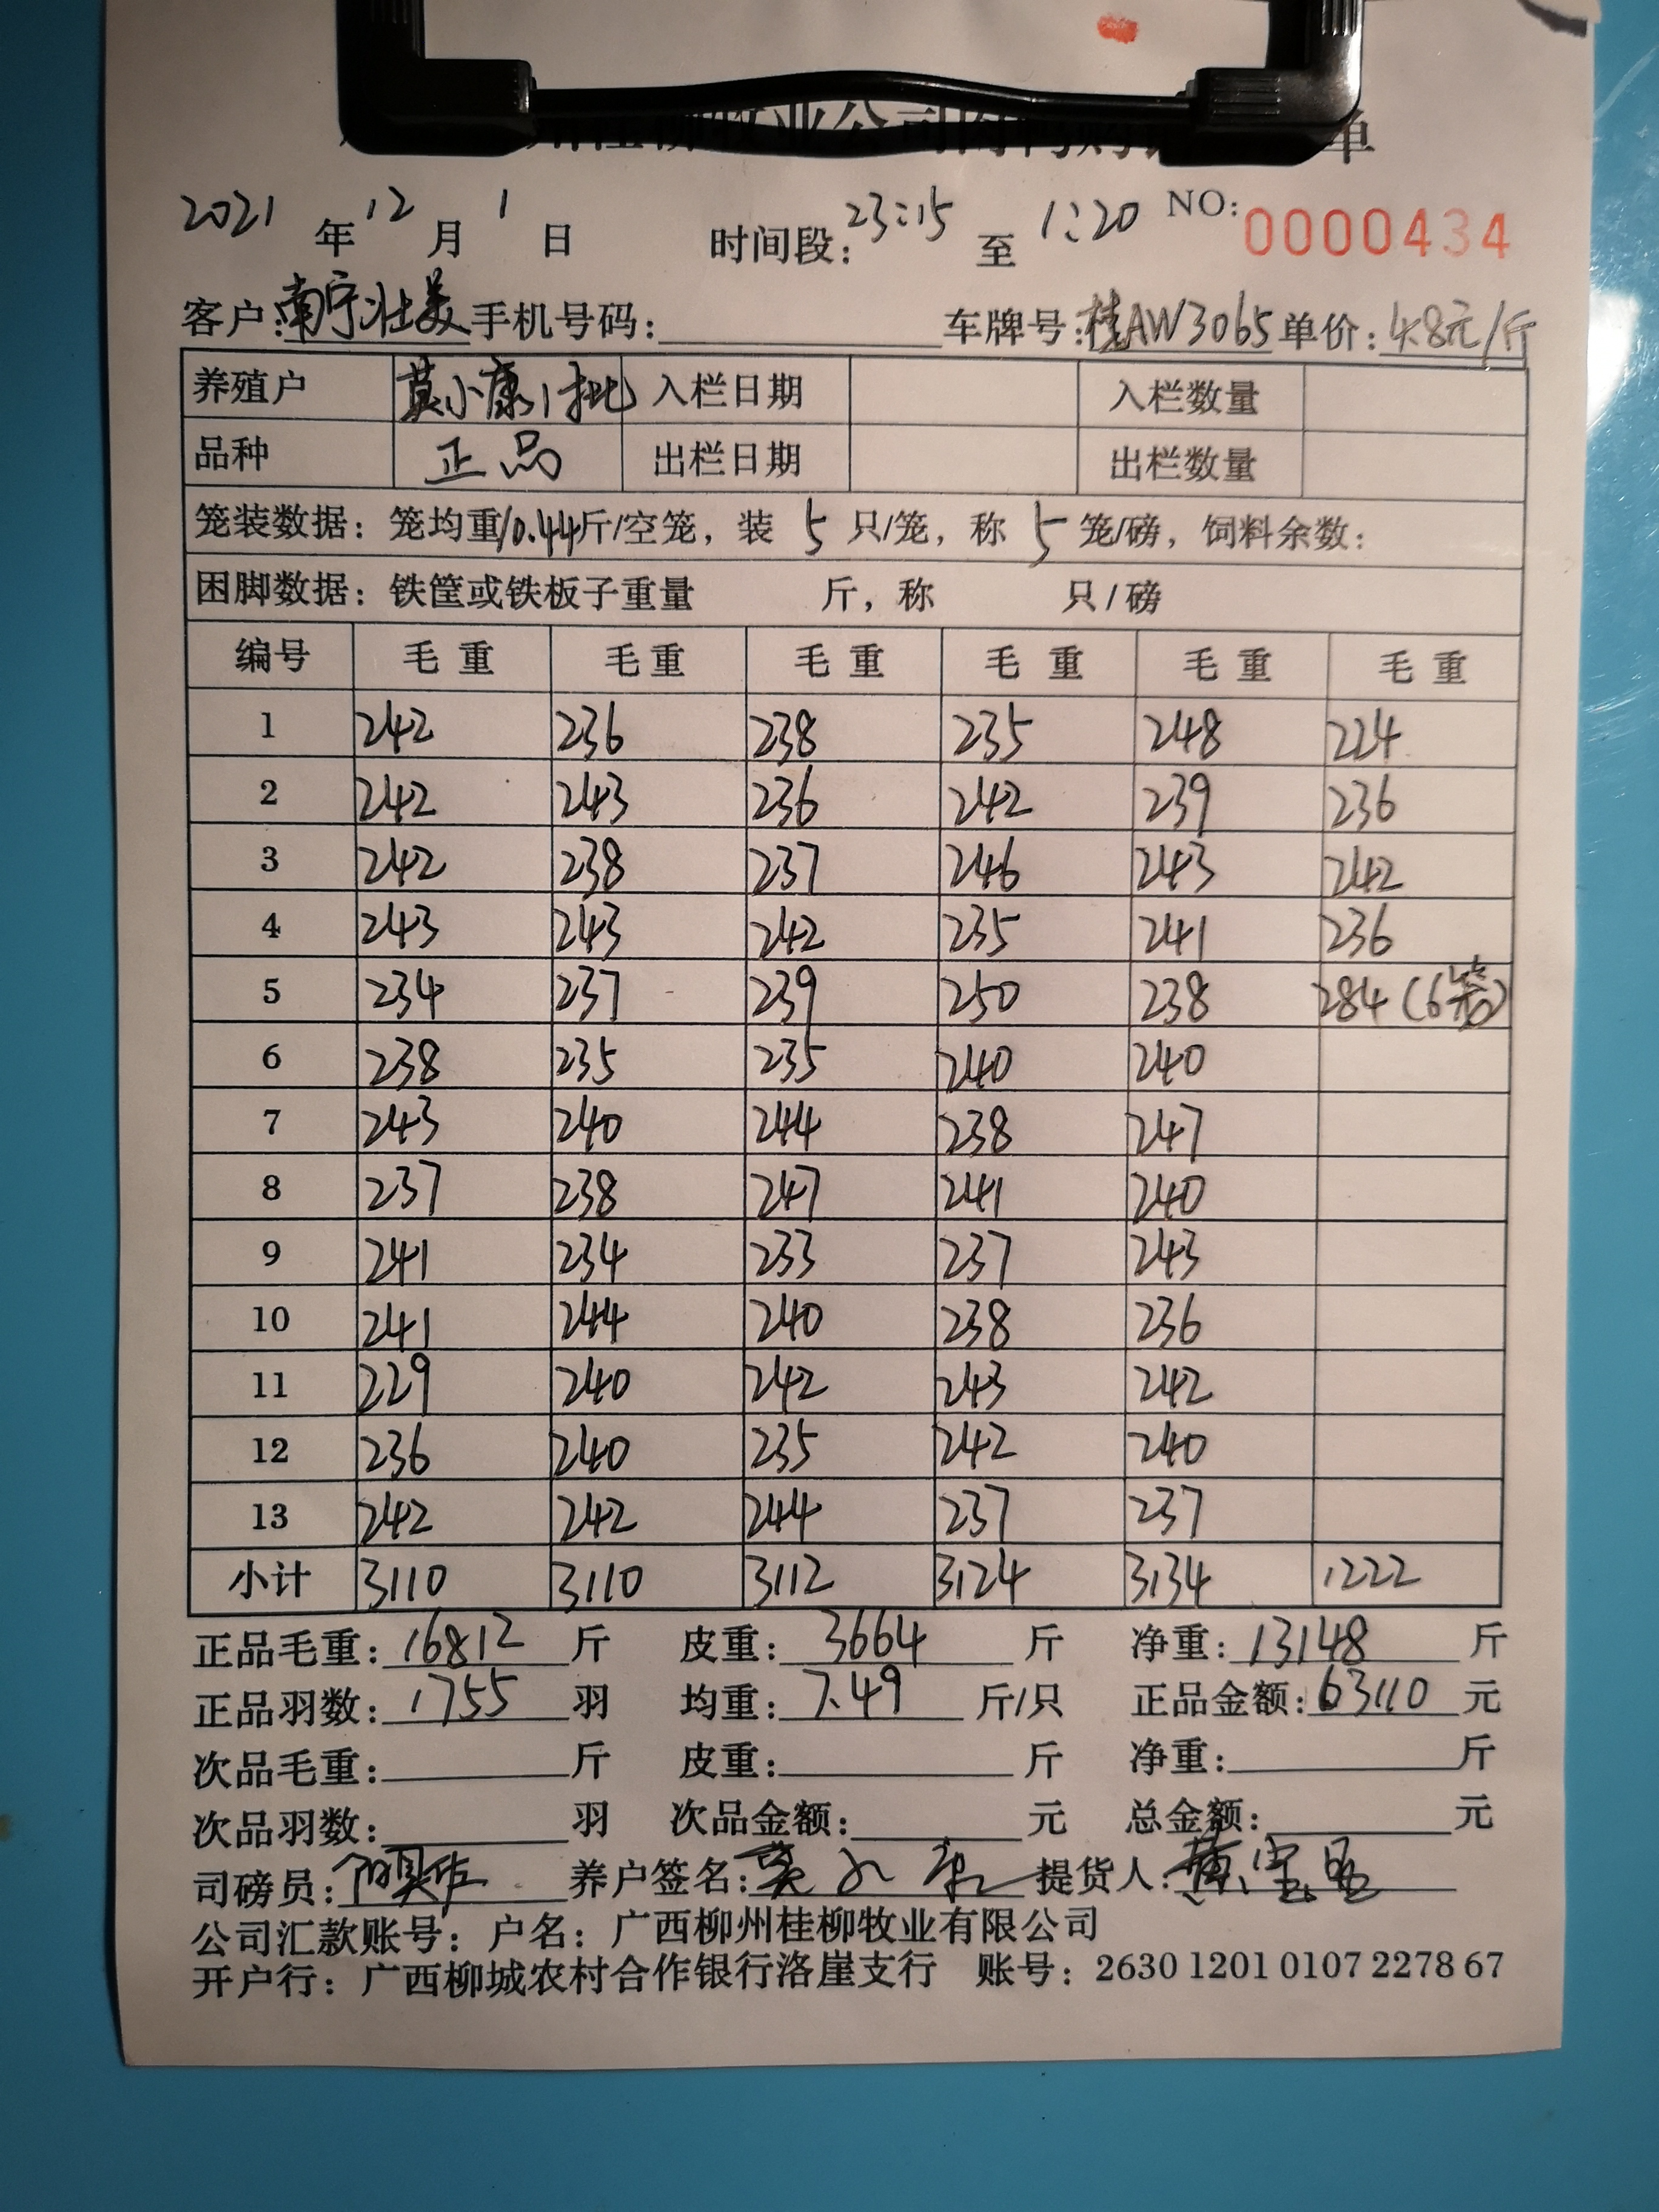 牧业公司
单
2021年12月1日 时间段：23:15至1:20 NO：0000434
客户：南宁壮美 手机号码： 车牌号：桂AW3065 单价：4.8元/斤
养殖户 莫小康1批 入栏日期 入栏数量
品种 正品 出栏日期 出栏数量
笼装数据：笼均重10.44斤/空笼，装5只/笼，称5笼/磅，饲料余数：
困脚数据：铁筐或铁板子重量 斤，称 只/磅
编号 毛重 毛重 毛重 毛重 毛重 毛重
1 242 236 238 235 248 224
2 242 243 236 242 239 236
3 242 238 237 246 243 242
4 243 243 242 235 241 236
5 234 237 239 250 238 284（6笼）
6 238 235 235 240 240
7 243 240 244 238 247
8 237 238 247 241 240
9 241 234 233 237 243
10 241 244 240 238 236
11 229 240 242 243 242
12 236 240 235 242 240
13 242 242 244 237 237
小计 3110 3110 3112 3124 3134 1222
正品毛重：16812斤 皮重：3664斤 净重：13148斤
正品羽数：1755羽 均重：7.49斤/只 正品金额：63110元
次品毛重： 斤 皮重： 斤 净重： 斤
次品羽数： 羽 次品金额： 元 总金额： 元
司磅员： 养户签名：莫小康 提货人：
公司汇款账号：户名：广西柳州桂柳牧业有限公司
开户行：广西柳城农村合作银行洛崖支行 账号：2630 1201 0107 2278 67